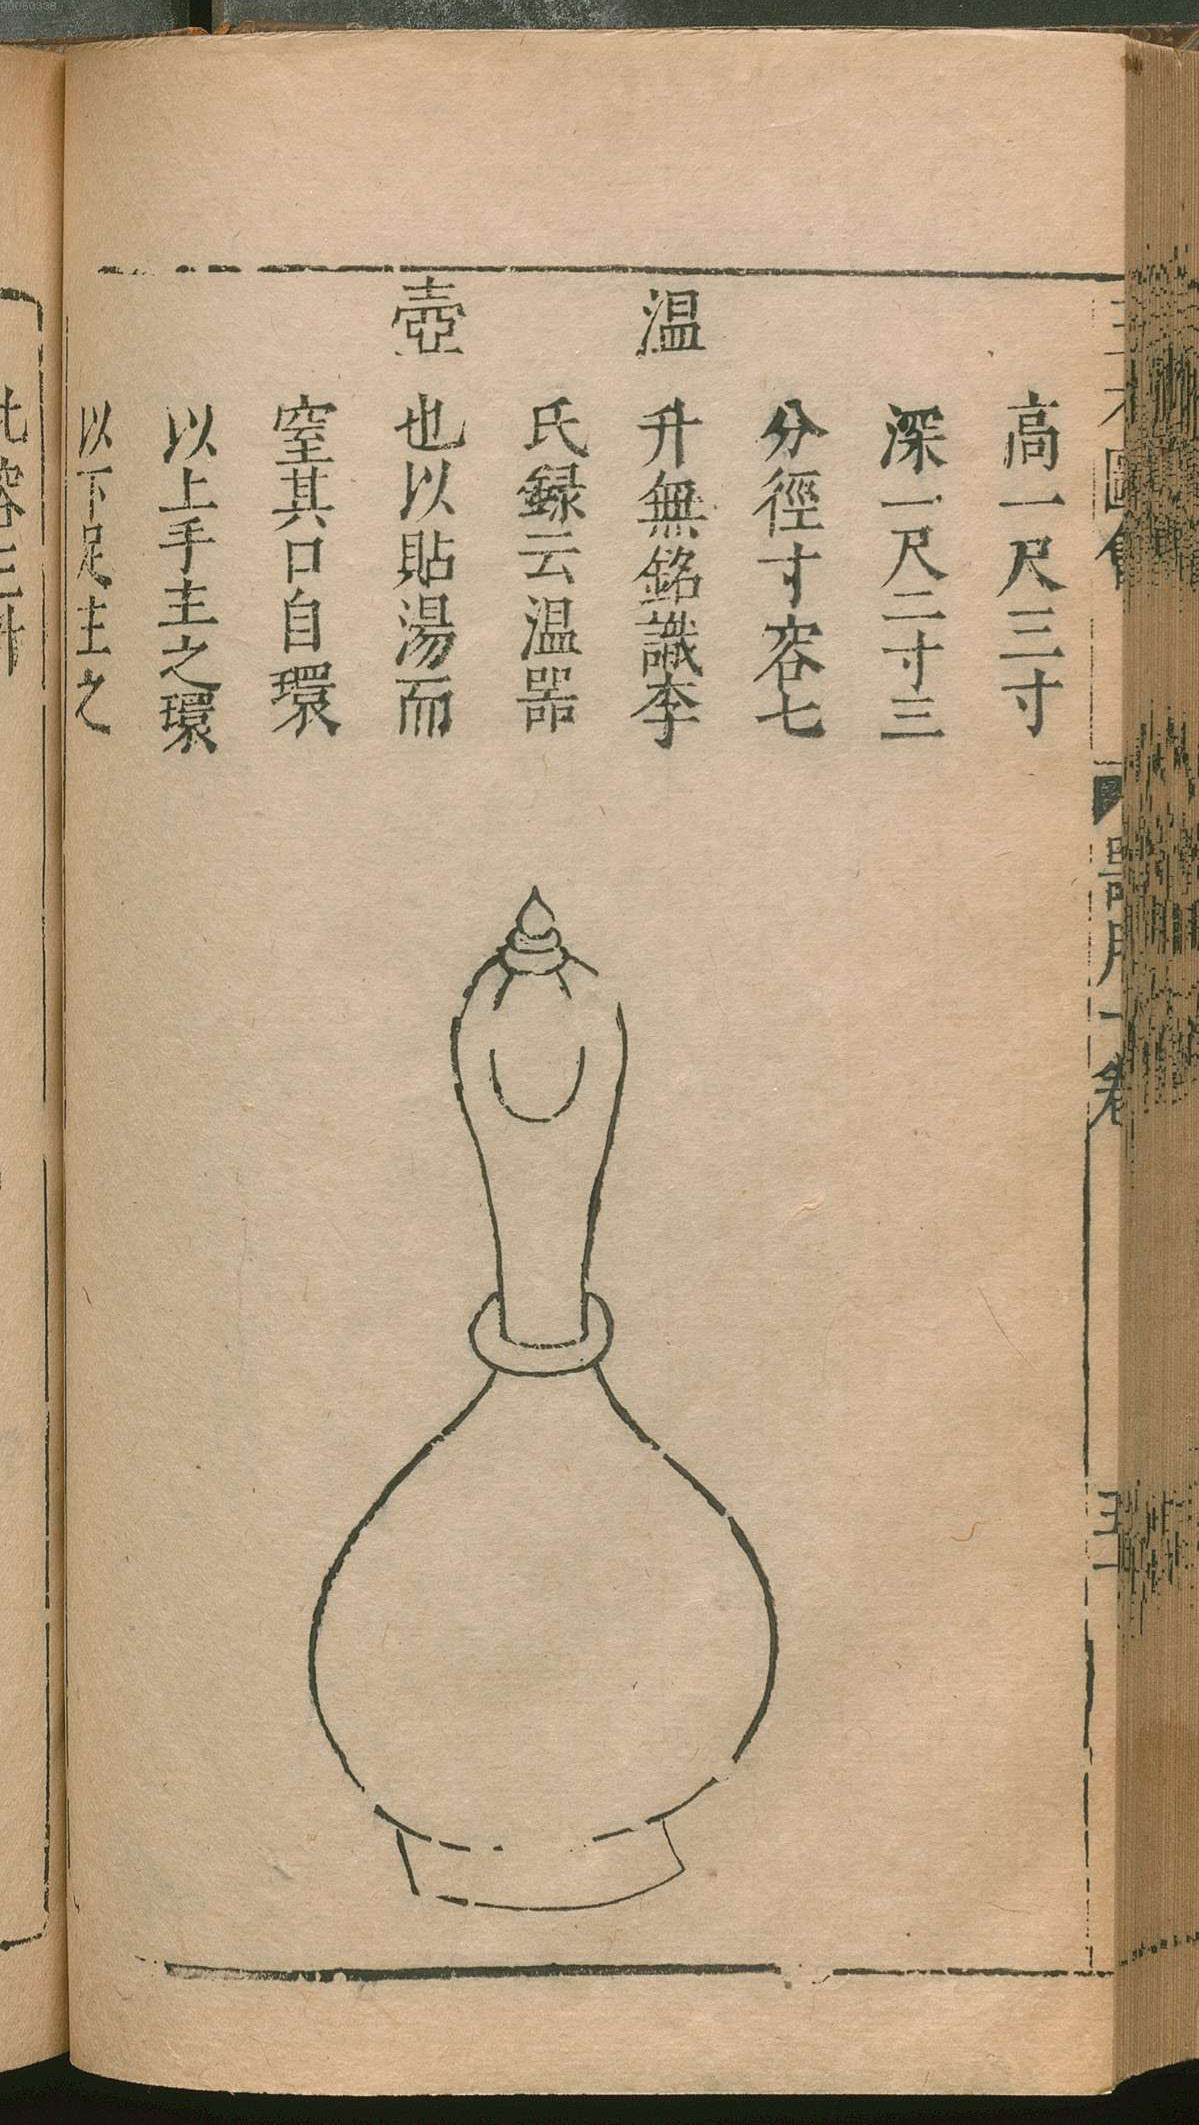 温壺
高一尺三寸
深一尺二寸三
分徑寸容七
升無銘識李
氏録云温器
也以貼湯而
窒其口自環
以上手主之環
以下足主之